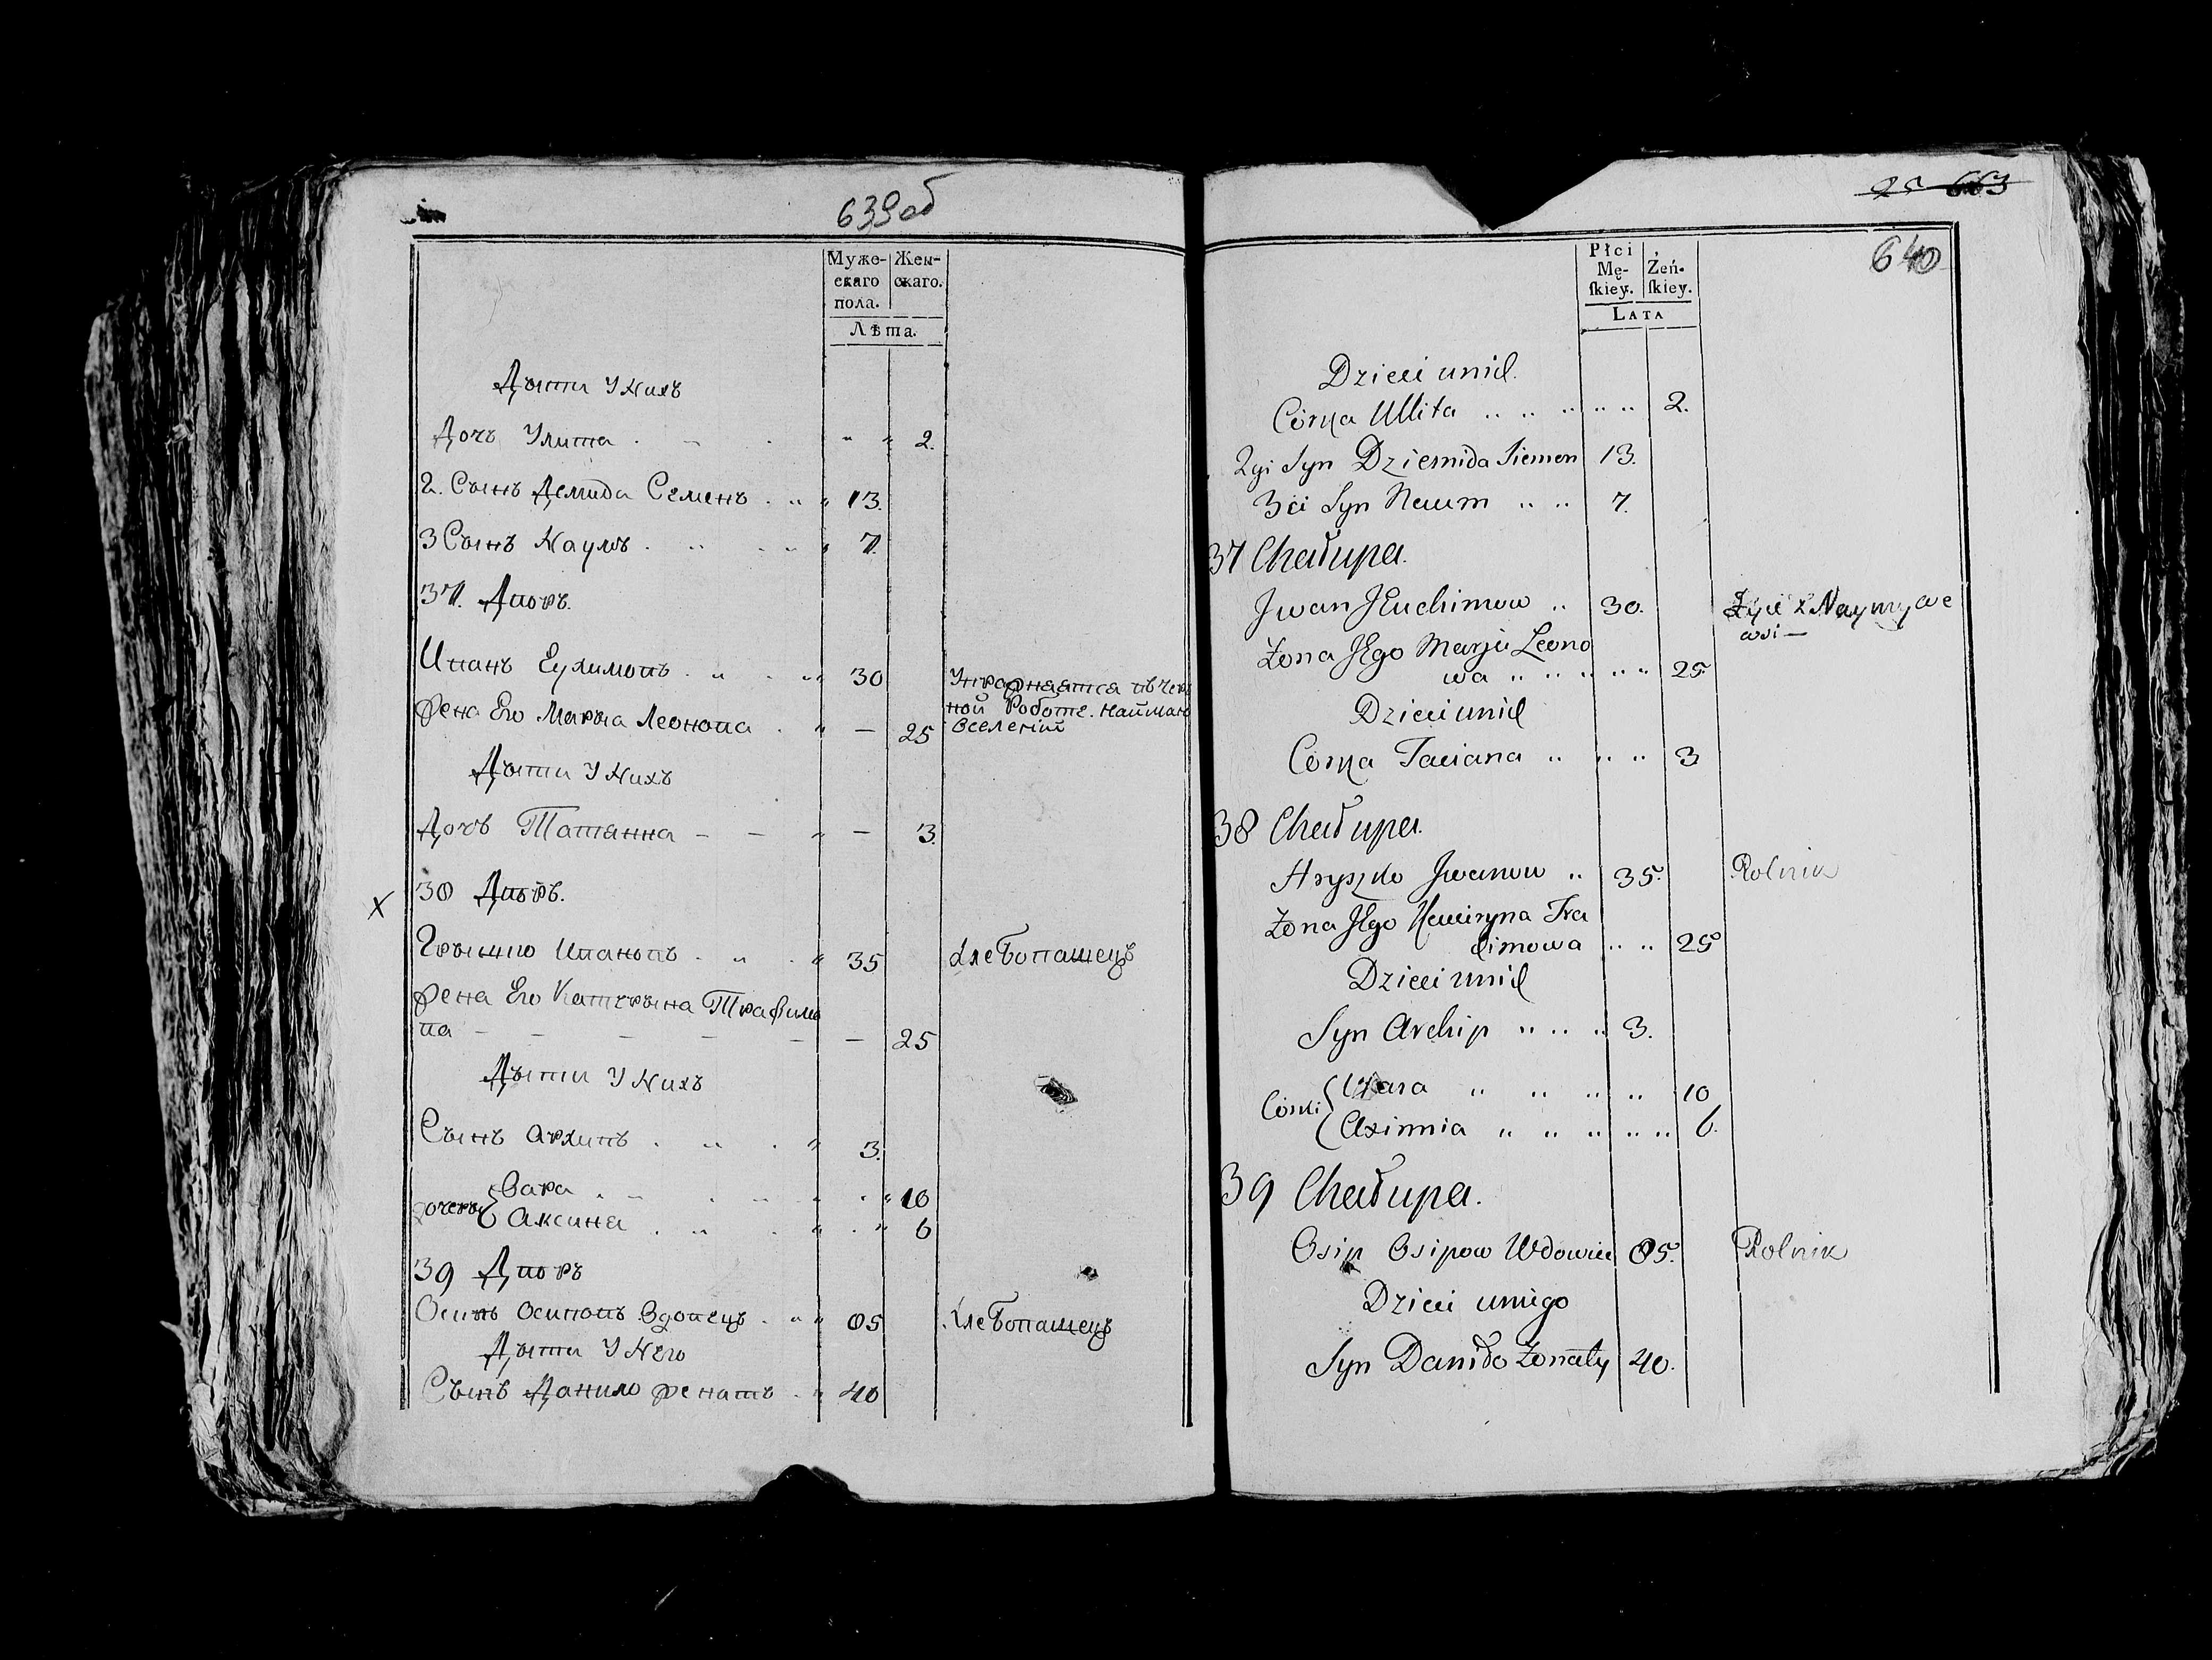 639об
Муже-
скаго
пола.
Жен-
скаго.
Лѣта.
Дѣти У Нихъ
Дочъ Улита 2.
2. Сынъ Демида Семенъ 13.
3 Сынъ Наумъ 7.
37. Дворъ.
Иванъ Еухимовъ 30
Жена Его Марья Леонова 25
Упражняется въ Чер
ной Роботе.
вселеніи
Дѣти У Нихъ
Дочъ Татянна 3.
38 Дворъ.
Х
Грышко Ивановъ 35 Хлебопашецъ
Жена Его Катерына Трафимо
ва 25
Дѣти У Нихъ
Сынъ Архипъ 3.
Вара 10
Дочеры
Аксиня 6
39 Дворъ
Осипъ Осиповъ Вдовецъ 85 Хлебопашецъ
Дѣти У Него
Сынъ Данило Женатъ 40
663
640
Płci
Mę-
ſkiey.
Żeń-
ſkiey.
LATA
Dzieci unich
Córka Ullita 2.
2gi Syn Dziemida Siemen 13.
3ci Syn Naum 7.
37 Chałupa.
Jwan JEuchimow 30. Żyie z Naymu we
wsi —
Żona JEgo Marja Leono
wa 25
Dzieci unich
Córka Taciana 3
38 Chałupa.
Hryszko Jwanow 35. Rolnik
Żona JEgo Kaciryna Tra
chimowa 25
Dzieci unich
Syn Archip 3.
Wara 10
Córki
Axinnia 6.
39 Chałupa.
Osip Osipow Wdowiec 85. Rolnik
Dzieci uniego
Syn Daniło Żonaty 40.